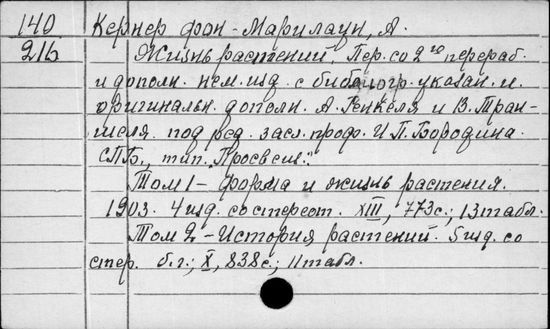 140 Кернер фон-Марилаун, А.
216 Жизнь растений. Пер. со 2го перераб.
и дополн. нем. изд. с библиогр. указан. и.
оригинальн. дополн. А. Генкеля и В. Тран-
шеля. под ред. засл. проф. И. П. Бородина.
СПБ., тип. "Просвещ.":
Том 1 - форма и жизнь растения.
1903. 4 изд. со стереот. XIII, 773с.; 13 табл.
Том 2 - История растений. 5 изд. со
стер. б.г.; X, 838с.; 11 табл.